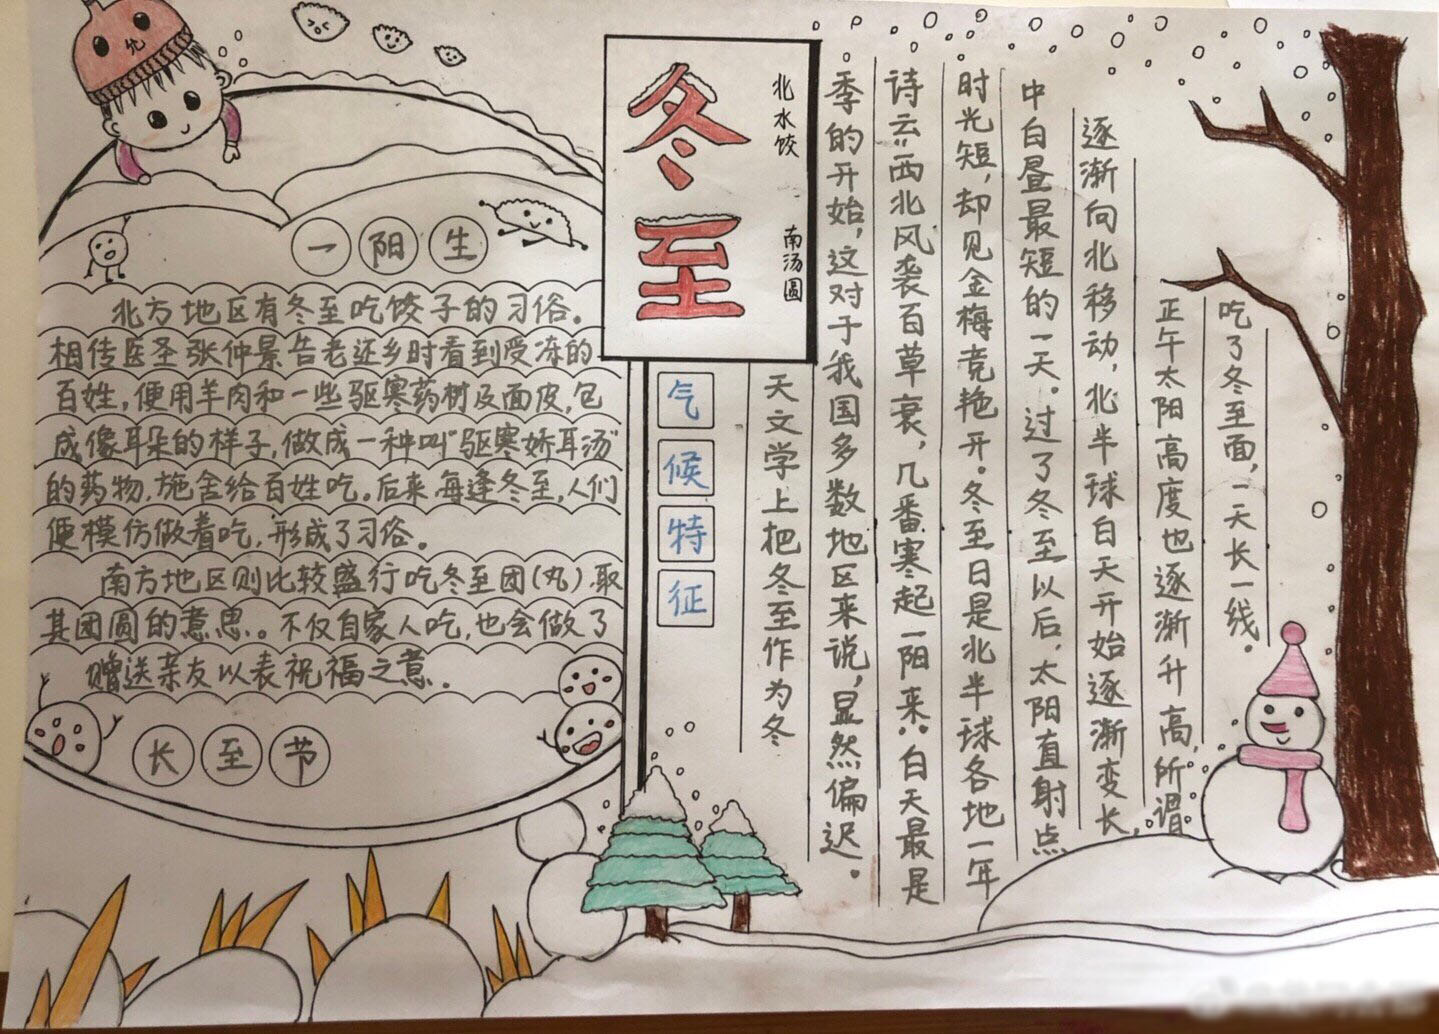 冬至
北水饺
南汤圆
一阳生
北方地区有冬至吃饺子的习俗。
相传医圣张仲景告老还乡时看到受冻的
百姓，便用羊肉和一些驱寒药树及面皮，包
成像耳朵的样子，做成一种叫“驱寒娇耳汤”
的药物，施舍给百姓吃。后来，每逢冬至，人们
便模仿做着吃，形成了习俗。
南方地区则比较盛行吃冬至团(丸)，取
其团圆的意思。不仅自家人吃，也会做了
赠送亲友以表祝福之意。
长至节
气候特征
天文学上把冬至作为冬
季的开始，这对于我国多数地区来说，显然偏迟。
诗云“西北风袭百草衰，几番寒起一阳来”白天最是
时光短，却见金梅竞艳开。冬至日是北半球各地一年
中白昼最短的一天。过了冬至以后，太阳直射点
逐渐向北移动，北半球白天开始逐渐变长，
正午太阳高度也逐渐升高，所谓
吃了冬至面，一天长一线。